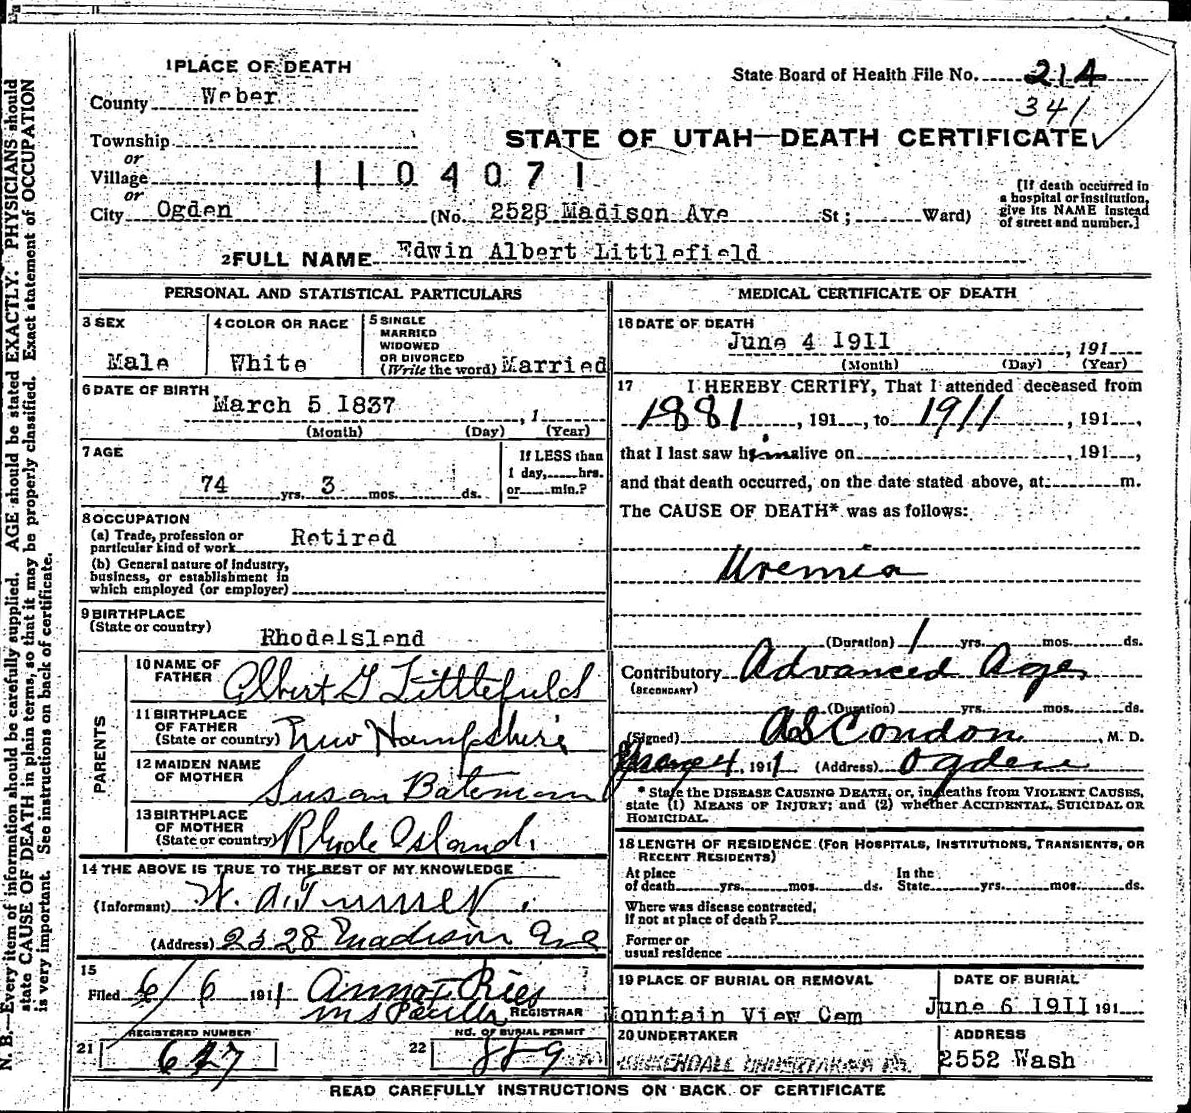 1 PLACE OF DEATH
State Board of Health File No. 214
County Weber
341
Township
STATE OF UTAH—DEATH CERTIFICATE
or
Village 1104071
or
City Ogden (No. 2528 Madison Ave St; Ward)
[If death occurred in
a hospital or institution,
give its NAME instead
of street and number.]
2 FULL NAME Edwin Albert Littlefield
PERSONAL AND STATISTICAL PARTICULARS
3 SEX
Male
4 COLOR OR RACE
White
5 SINGLE
MARRIED
WIDOWED
OR DIVORCED
(Write the word) Married
6 DATE OF BIRTH
March 5 1837 , 1
(Month) (Day) (Year)
7 AGE
74 yrs. 3 mos. ds.
If LESS than
1 day, hrs.
or min.?
8 OCCUPATION
(a) Trade, profession or
particular kind of work Retired
(b) General nature of industry,
business, or establishment in
which employed (or employer)
9 BIRTHPLACE
(State or country)
RhodeIslend
PARENTS
10 NAME OF
FATHER Albert G Littlefield
11 BIRTHPLACE
OF FATHER
(State or country) New Hampshire
12 MAIDEN NAME
OF MOTHER Susan Bateman
13 BIRTHPLACE
OF MOTHER
(State or country) Rhode Island.
14 THE ABOVE IS TRUE TO THE BEST OF MY KNOWLEDGE
(Informant) W. A.
(Address) 2528 Madison Ave
15
Filed 6/6 1911 Anna F Ries
REGISTRAR
REGISTERED NUMBER
21 627
NO. OF BURIAL PERMIT
22 889
MEDICAL CERTIFICATE OF DEATH
16 DATE OF DEATH
June 4 1911 , 191
(Month) (Day) (Year)
17 I HEREBY CERTIFY, That I attended deceased from
1881 , 191 , to 1911 , 191 ,
that I last saw him alive on , 191 ,
and that death occurred, on the date stated above, at m.
The CAUSE OF DEATH* was as follows:
Uremia
(Duration) 1 yrs. mos. ds.
Contributory Advanced Age
(SECONDARY)
(Duration) yrs. mos. ds.
(Signed) AS Condon M. D.
June 4, 1911 (Address) Ogden
* State the DISEASE CAUSING DEATH, or, in deaths from VIOLENT CAUSES,
state (1) MEANS OF INJURY; and (2) whether ACCIDENTAL, SUICIDAL OR
HOMICIDAL.
18 LENGTH OF RESIDENCE (FOR HOSPITALS, INSTITUTIONS, TRANSIENTS, OR
RECENT RESIDENTS)
At place
of death yrs. mos. ds.
In the
State yrs. mos. ds.
Where was disease contracted,
If not at place of death?
Former or
usual residence
19 PLACE OF BURIAL OR REMOVAL
Mountain View Cem
DATE OF BURIAL
June 6 1911 191
20 UNDERTAKER
ADDRESS
2552 Wash
READ CAREFULLY INSTRUCTIONS ON BACK OF CERTIFICATE
N. B.—Every item of information should be carefully supplied. AGE should be stated EXACTLY. PHYSICIANS should
state CAUSE OF DEATH in plain terms, so that it may be properly classified. Exact statement of OCCUPATION
is very important. See instructions on back of certificate.